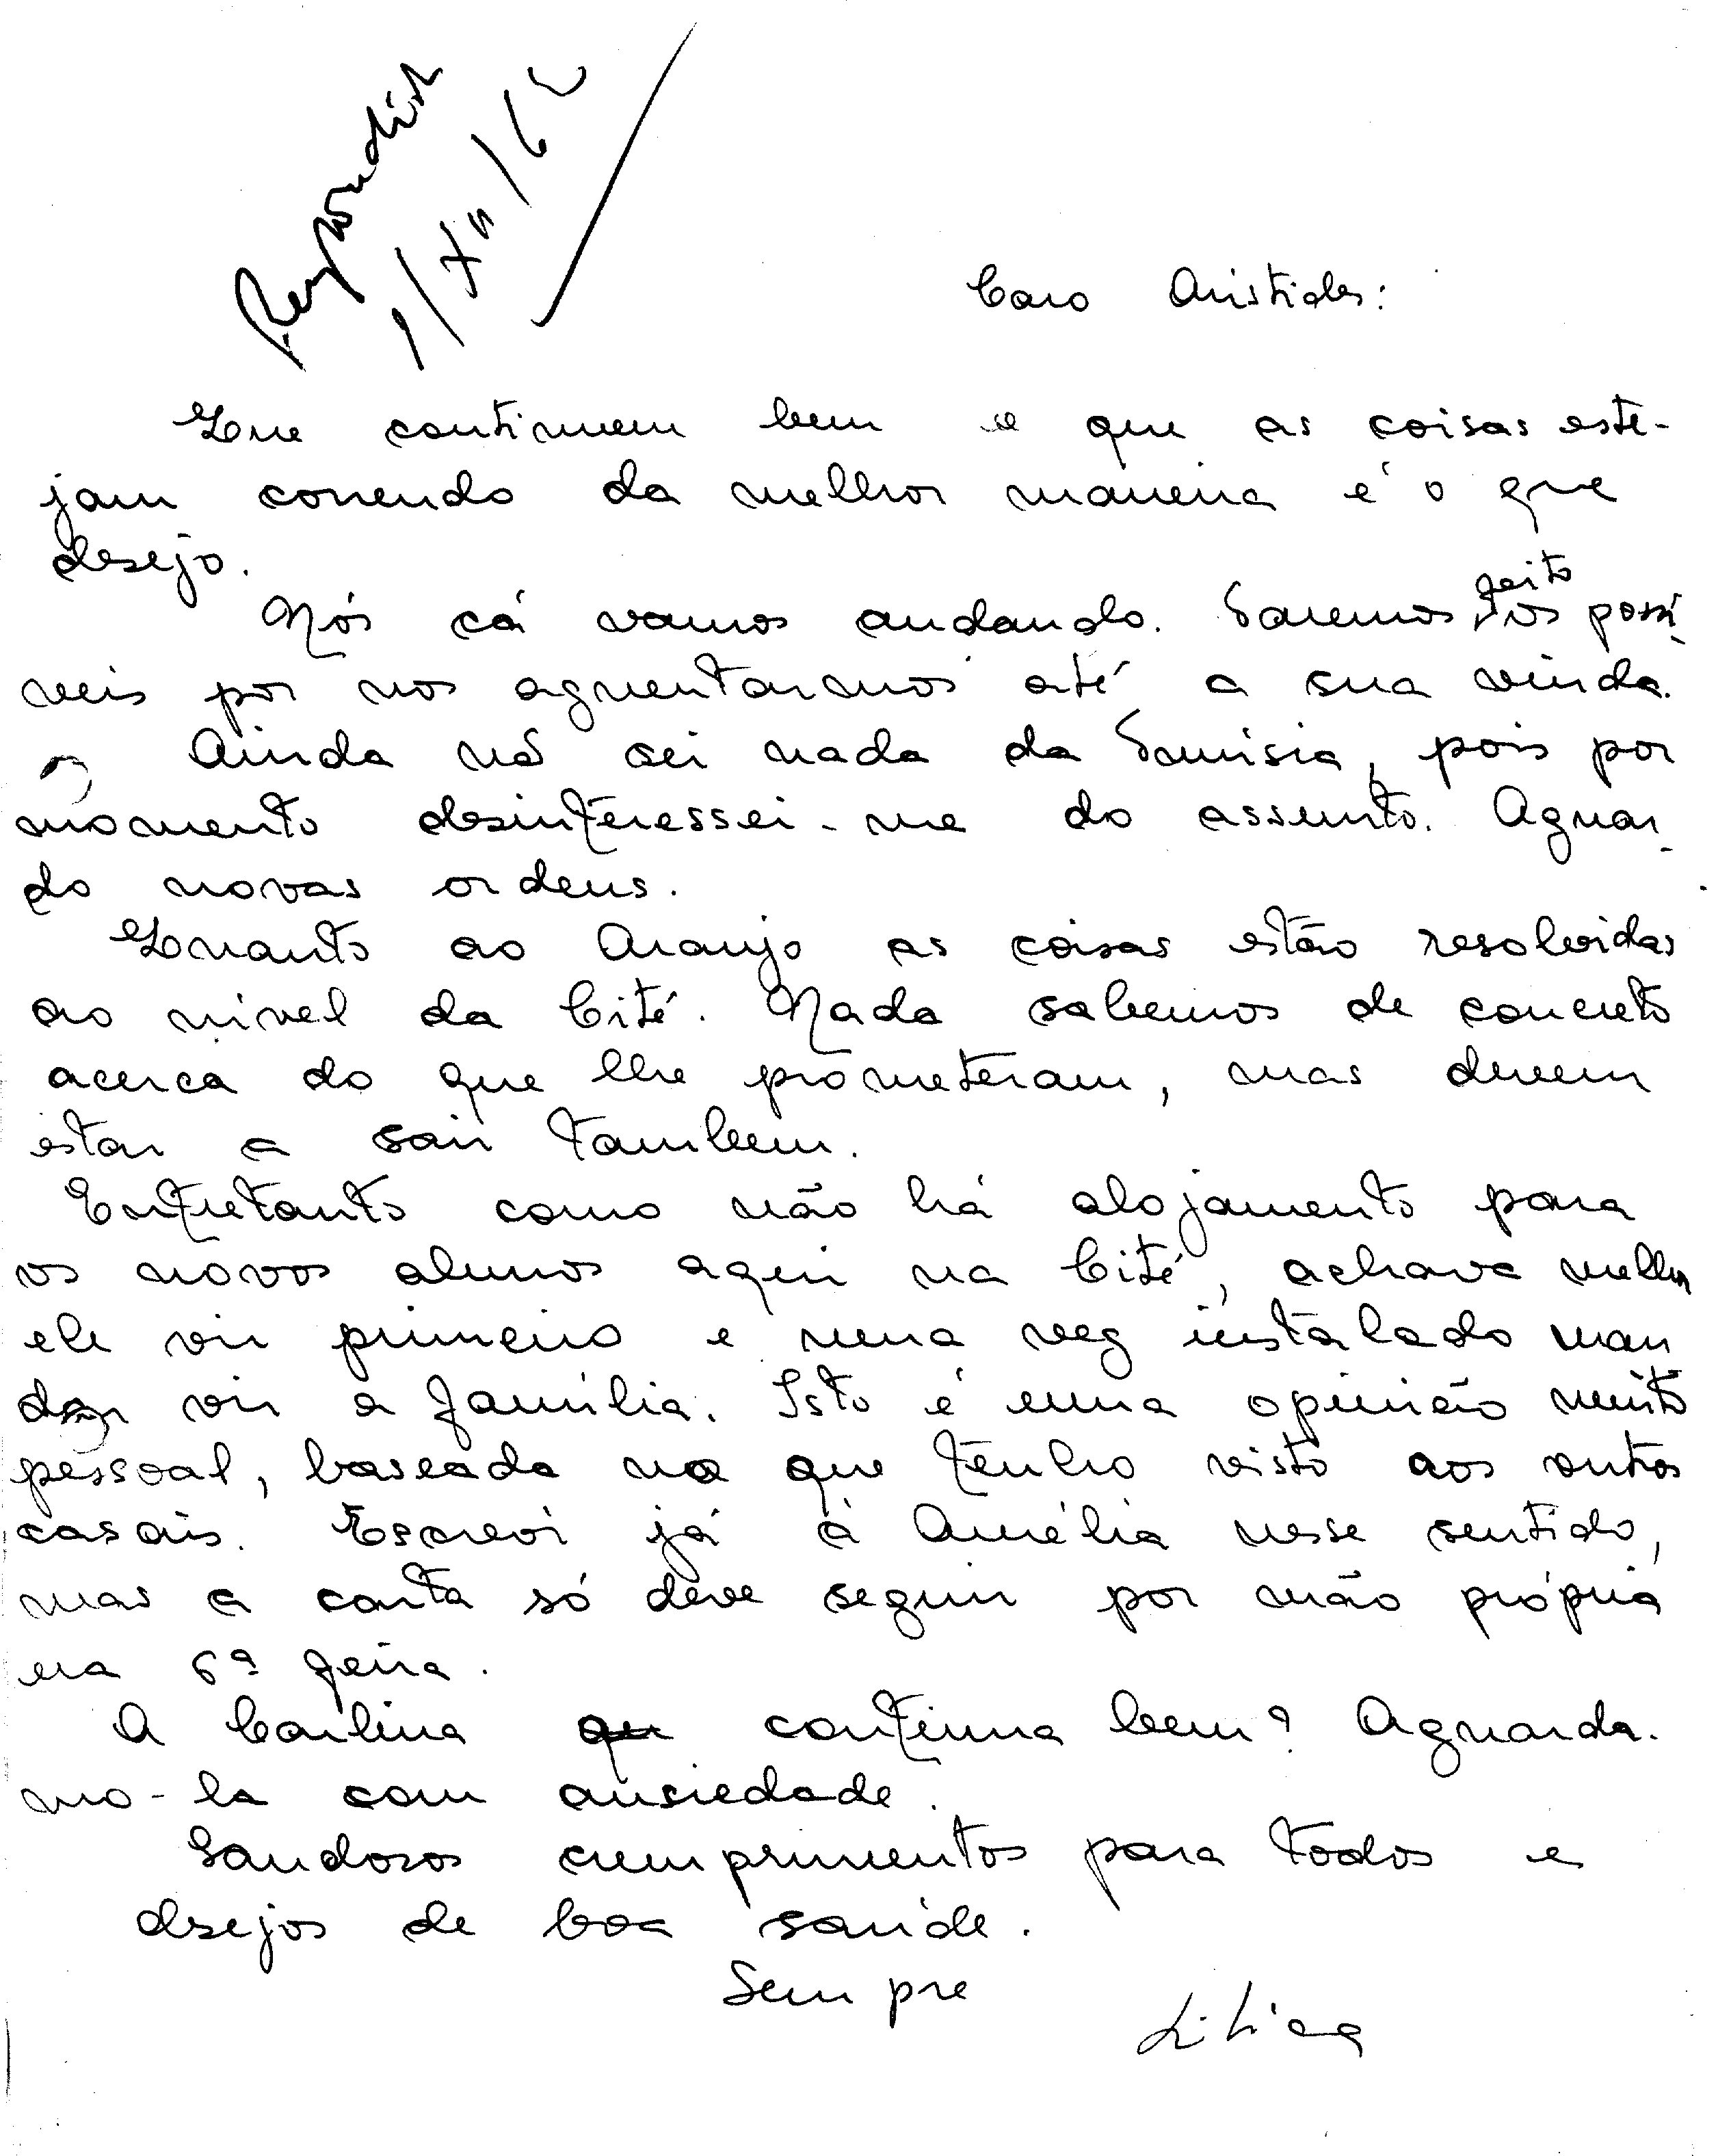 Respondida
1/XII/62
Caro Aristides:
Que continuem bem e que as coisas este-
jam correndo da melhor maneira é o que
desejo.
Nós cá vamos andando. Faremos jeito possí-
veis por nos aguentarmos até a sua vinda.
Ainda nã sei nada da Tunisia, pois por
momento desinteressei-me do assunto. Aguar-
do novas ordens.
Quanto ao Araujo as coisas estão resolvidas
ao nivel da Cité. Nada sabemos de concreto
acerca do que lhe prometeram, mas devem
estar a sair tambem.
Entretanto como não há alojamento para
os novos alunos aqui na Cité, achava melhor
ele vir primeiro e uma vez instalado man
dar vir a família. Isto é uma opinião muito
pessoal, baseada no que tenho visto aos outros
casais. Escrevi já à Amélia nesse sentido,
mas a carta só deve seguir por mão própria
na 6ª feira.
A Carlina continua bem? Aguarda-
mo-la com ansiedade.
Saudosos cumprimentos para todos e
desejos de boa saúde.
Sempre
Lilica